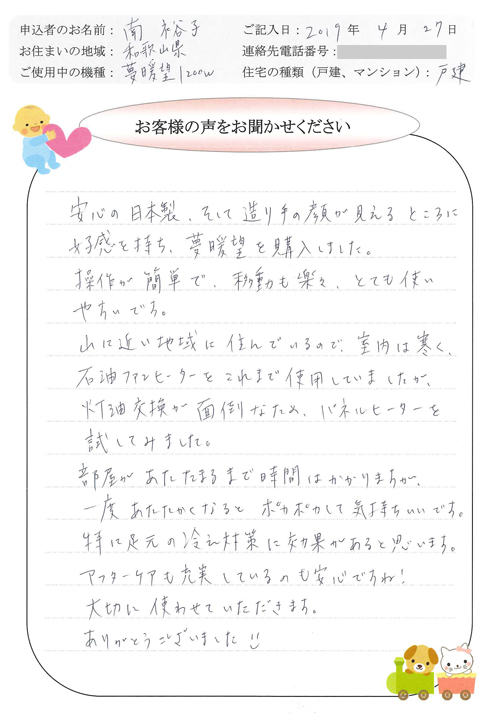 申込者のお名前： 南 裕子
ご記入日：2019年 4月 27日
お住まいの地域： 和歌山県
連絡先電話番号：
ご使用中の機種： 夢暖望1200W
住宅の種類（戸建、マンション）：戸建
お客様の声をお聞かせください
安心の日本製、そして造り手の顔が見えるところに
好感を持ち、夢暖望を購入しました。
操作が簡単で、移動も楽々、とても使い
やすいです。
山に近い地域に住んでいるので、室内は寒く、
石油ファンヒーターをこれまで使用していましたが、
灯油交換が面倒なため、パネルヒーターを
試してみました。
部屋があたたまるまで時間はかかりますが、
一度あたたかくなるとポカポカして気持ちいいです。
特に足元の冷え対策に効果があると思います。
アフターケアも充実しているのも安心ですね！
大切に使わせていただきます。
ありがとうございました